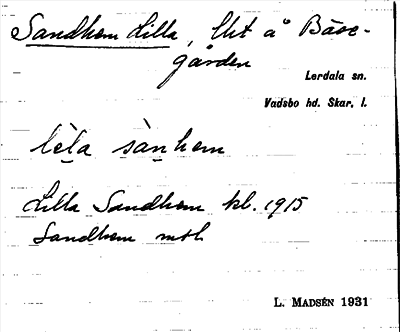 Sandhem Lilla, lht å Bäse-
gården
Lerdala sn.
Vadsbo hd. Skar. l.
lèla sànhem
Lilla Sandhem kl. 1915
Sandhem mtl
L. MADSÉN 1931